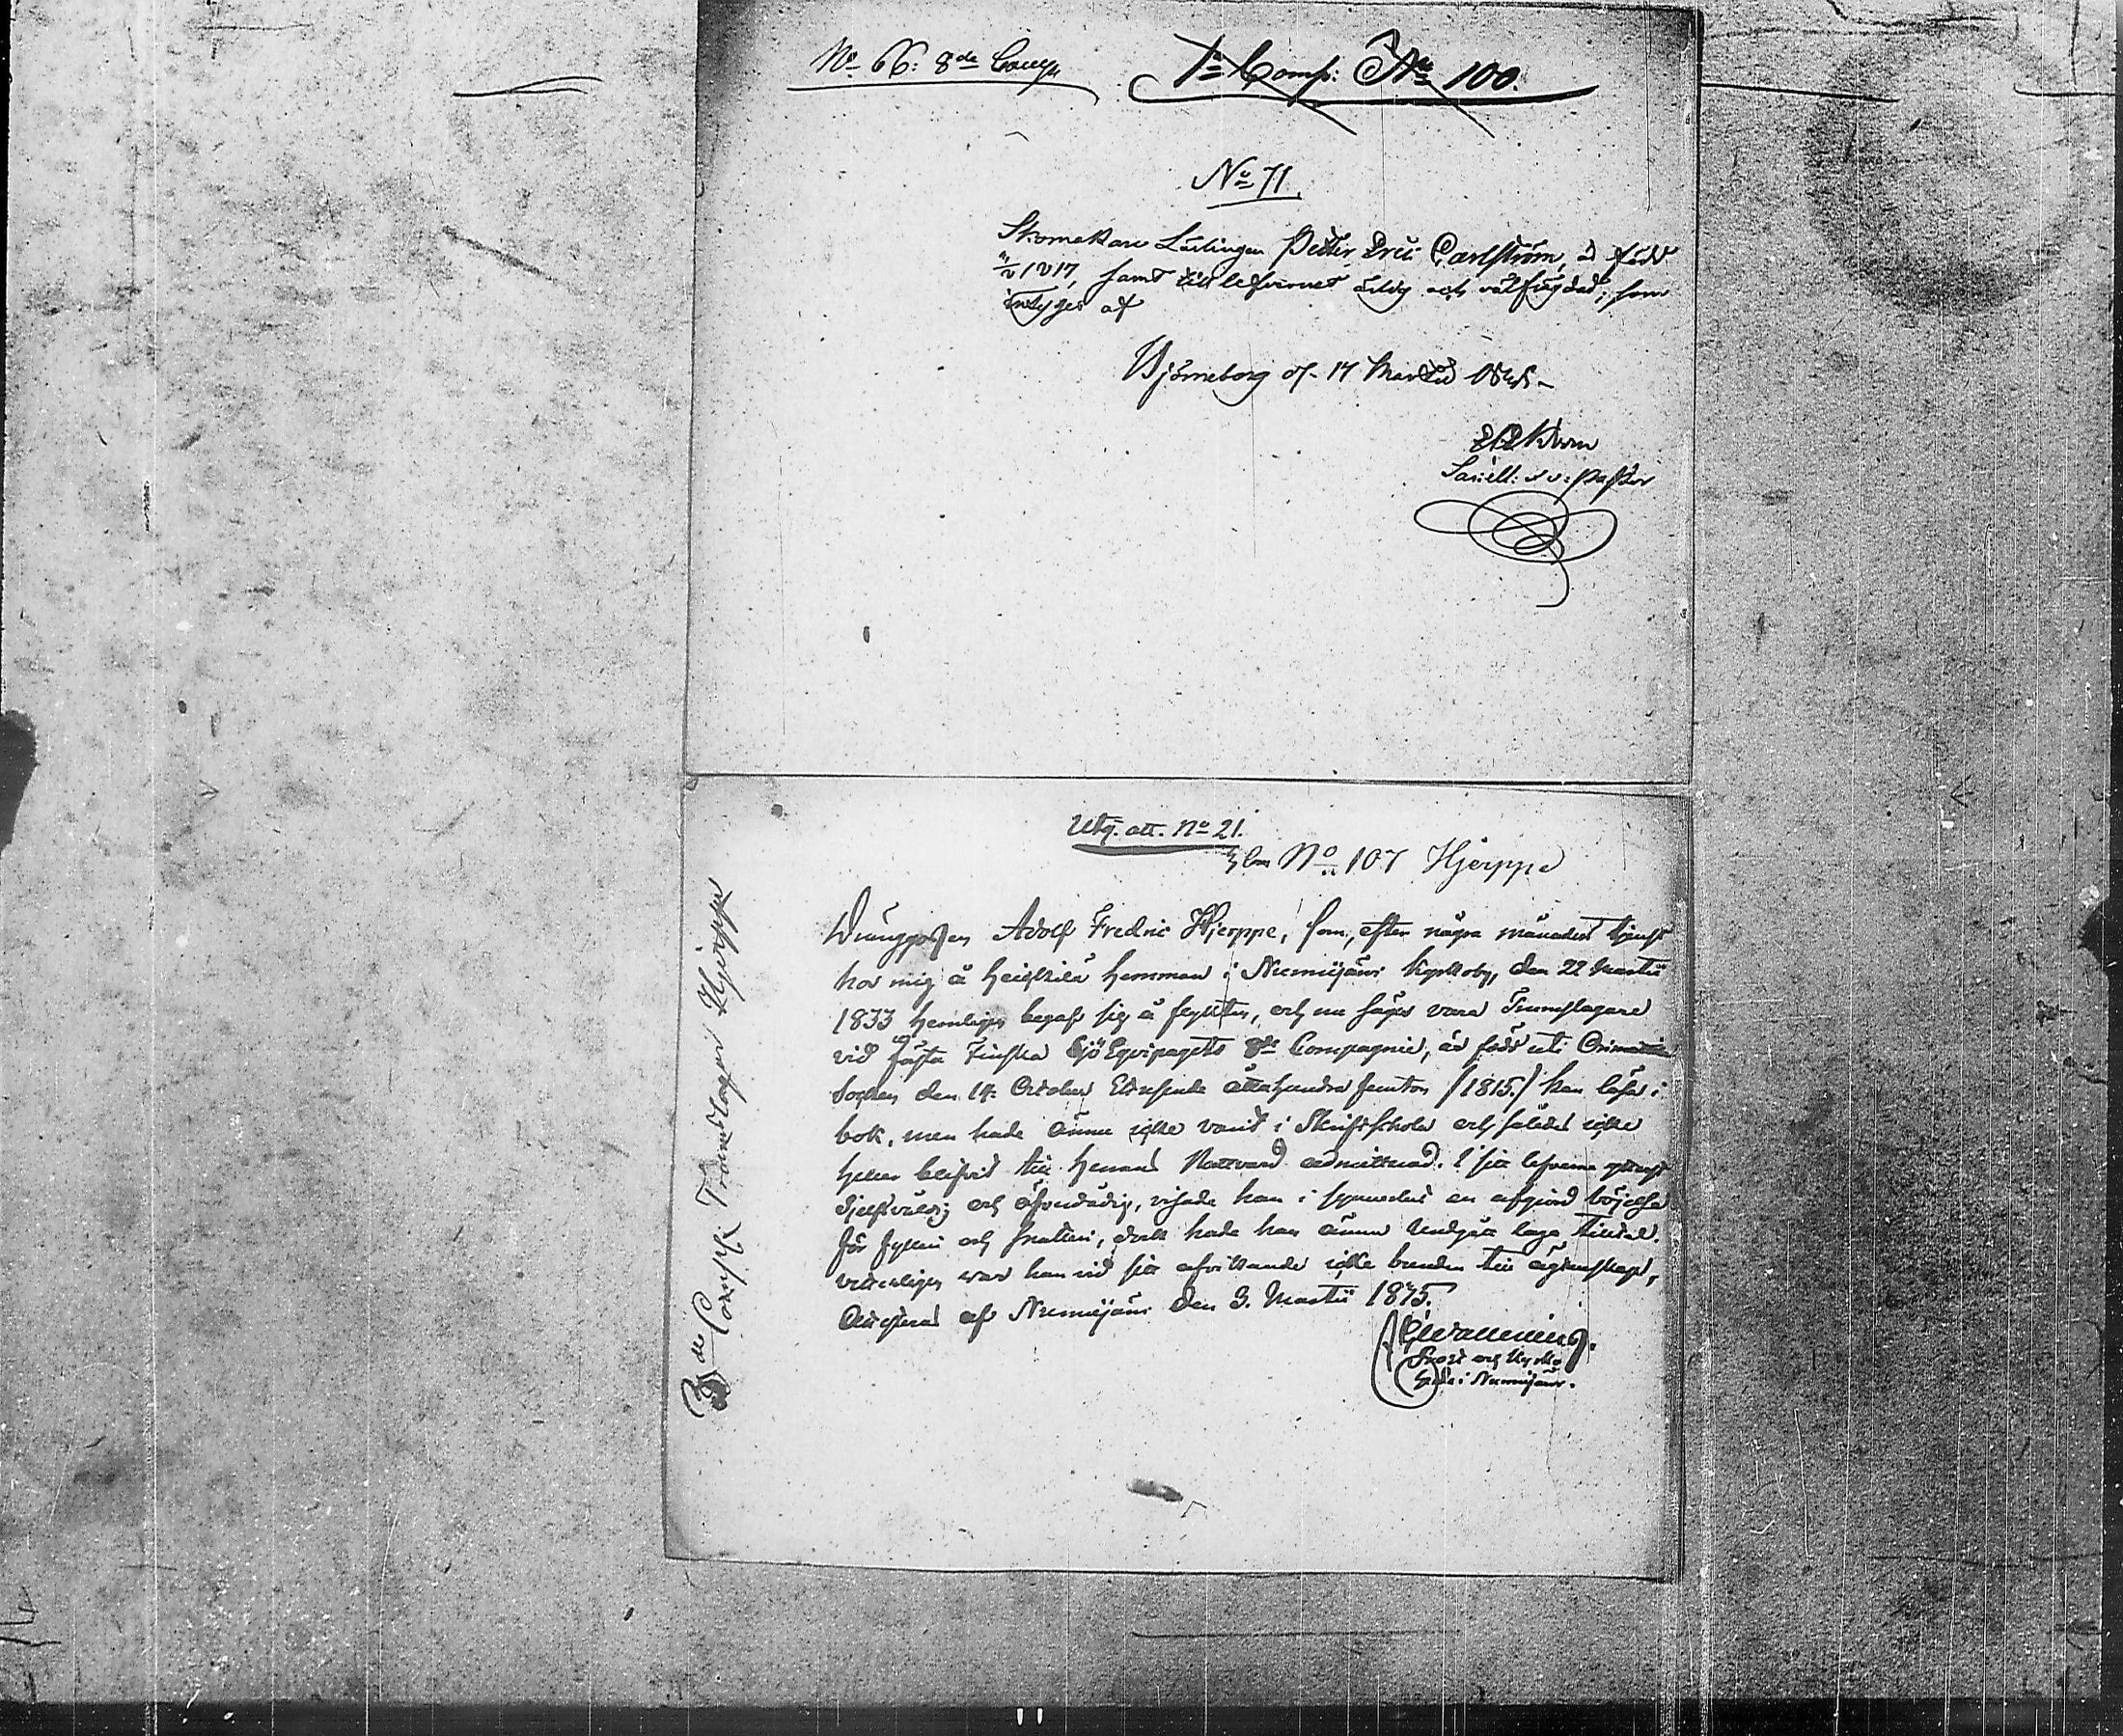 No 66: 8de Comp
1a Comp: No 100.
No 71
Skomakare Lärlingen Petter Eric Carlström, är född
1817, samt till lefvernet ärlig och välfrägdad; som
intygas af
Björneborg d. 17 Martii
Sacell. v. Pastor
Utg. att. No 21.
No 107 Hjerppe
Drenggossen Adolf Fredric Hjerppe, som, efter några månaders tjenst
hos mig å Heickilä hemman i Nurmijärvi Kyrkoby, den 22 Martii
1833 hemligen begaf sig å flykten, och nu säges vara Trumslagare
vid Första Finska Sjö Equipagets 8de Compagnie, är född uti Orimattila
Socken den 14 October Ettusende åttahundra femton /1815./ kan läsa i
bok, men hade ännu icke varit i Skriftschola och således icke
heller blifvit till Herrans Nattvard admitterad. I sitt lefverne
sjelfsvåldig och, visade han i synnerhet en afgjord böjelse
för fylleri och snatteri, dock hade han ännu undgått laga tilltal.
var han vid sitt afvikande icke bunden till ägtenskap,
Attesteras af Nurmijärvi den 3. Martii 1835.
Prost och Kyrko
herde i Nurmijärvi.
8de Compn Trumslagar Hjerppe